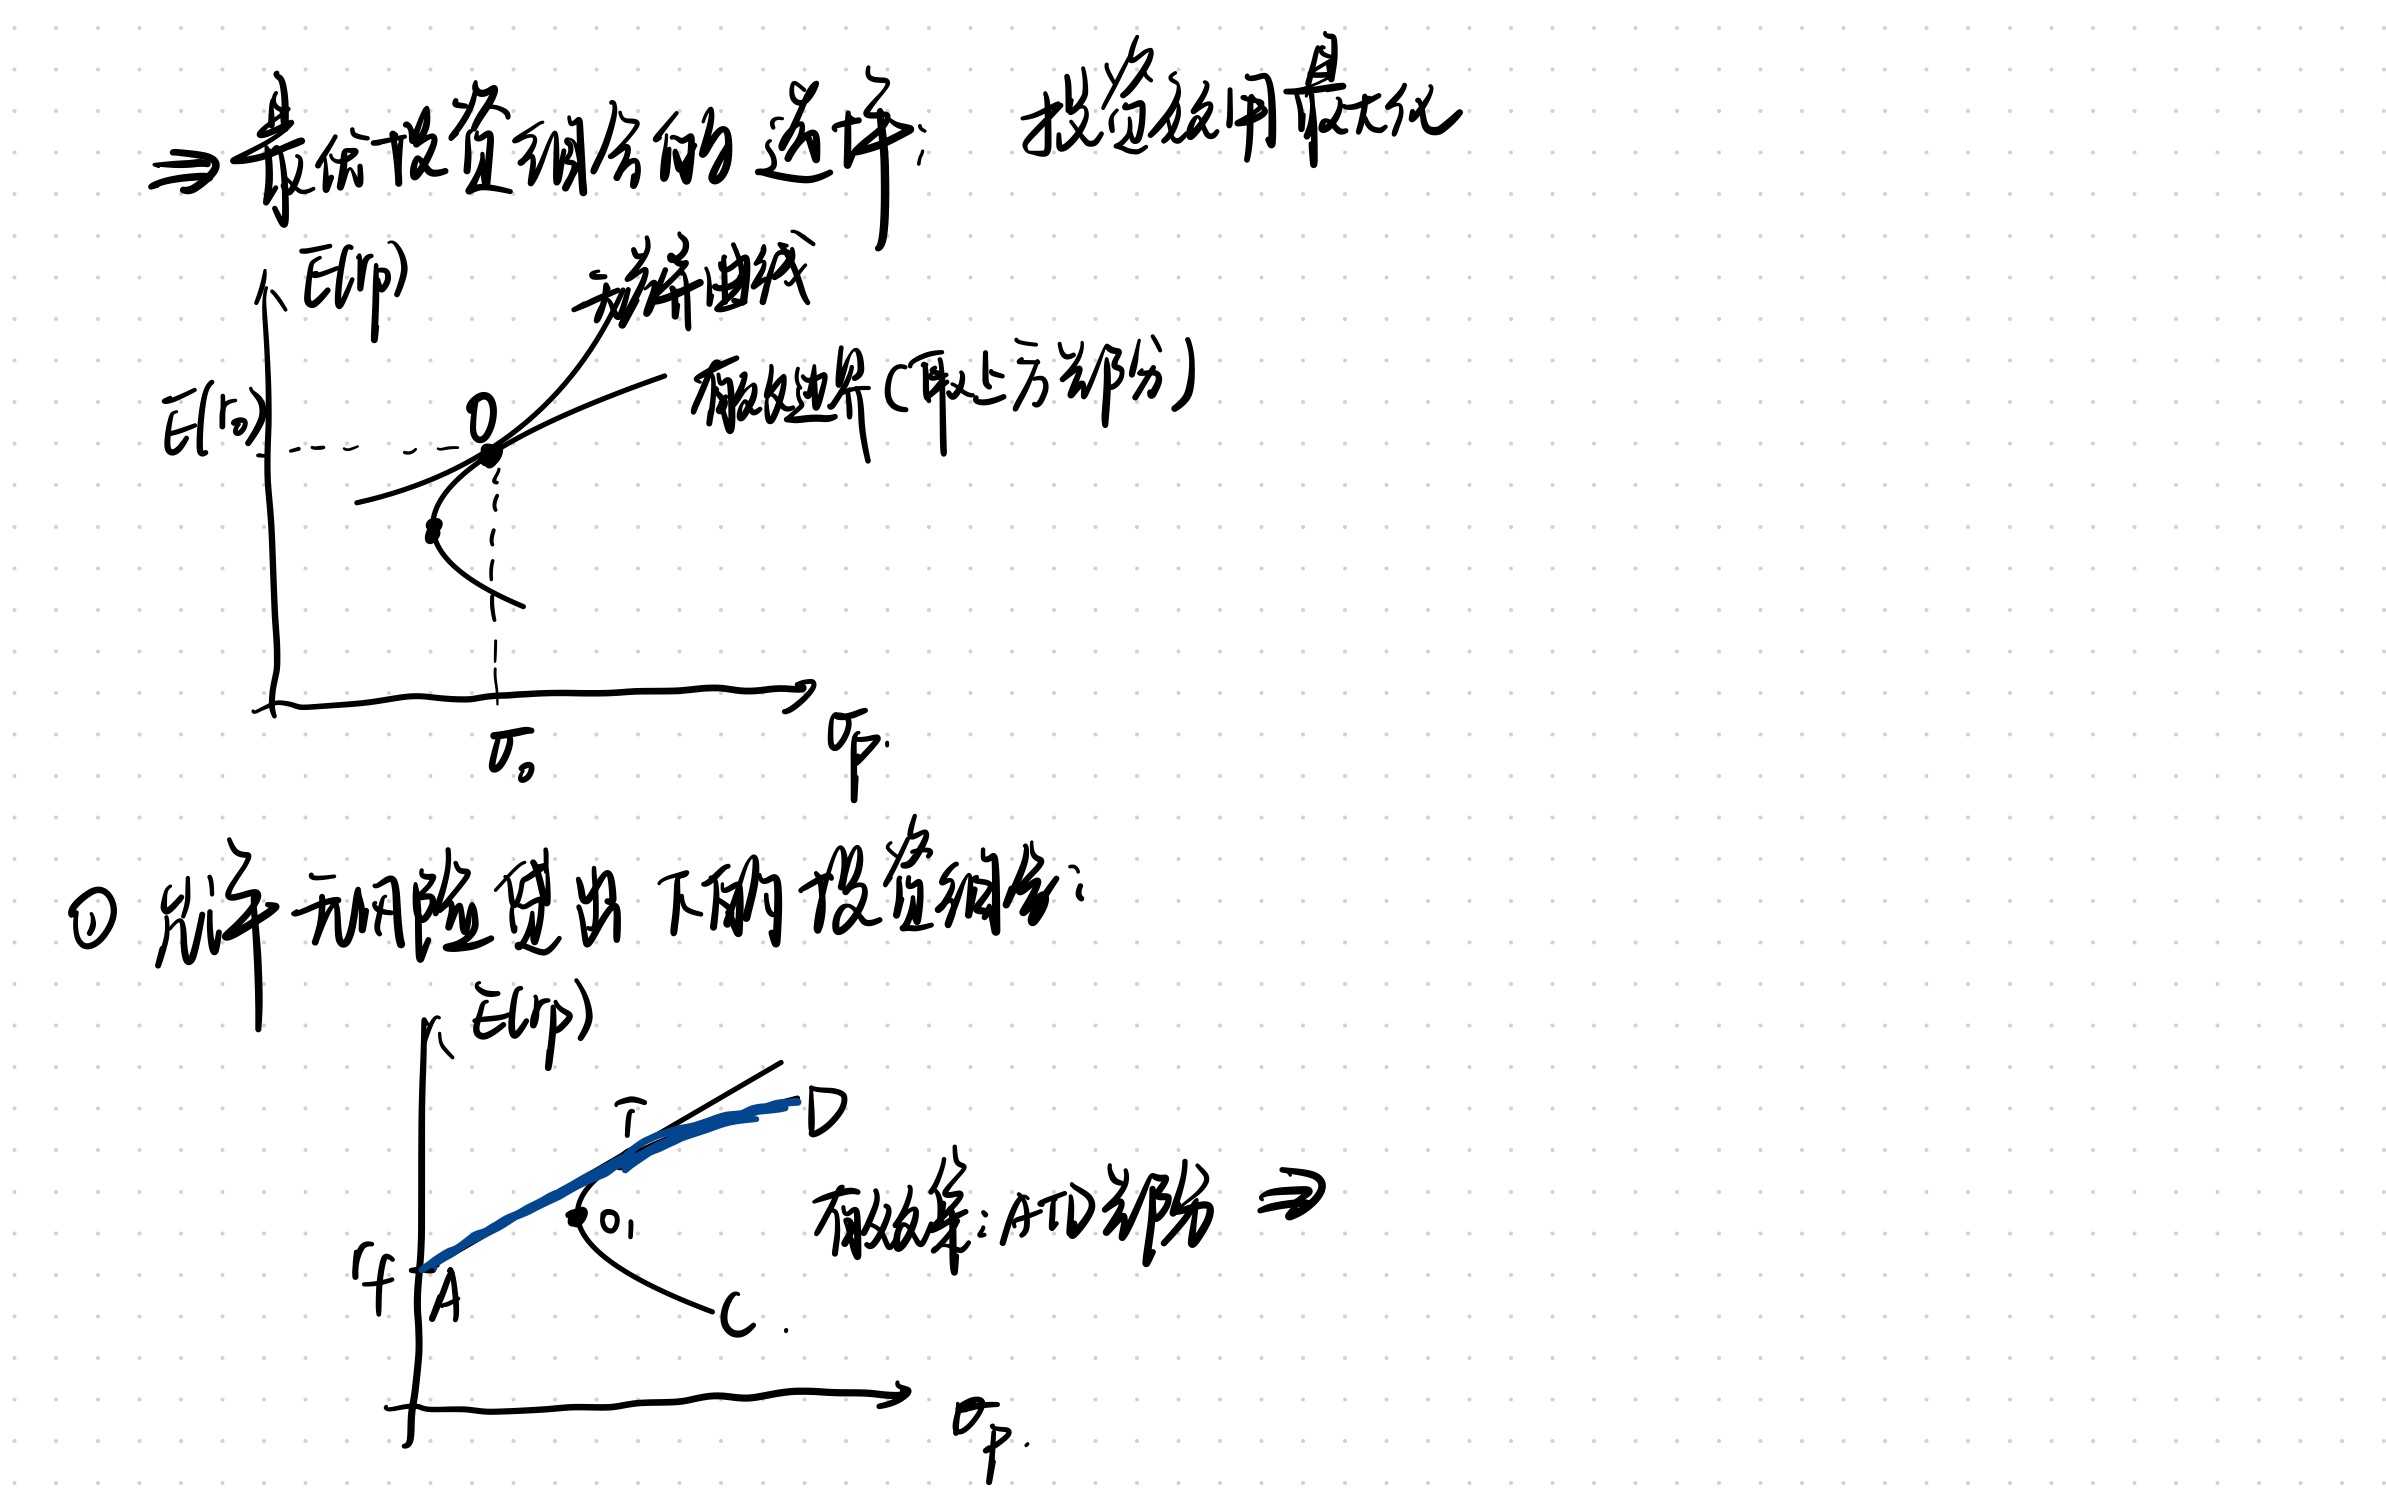 ⇒ 最佳投资组合的选择: 投资者效用最大化
E(rp)
无差异曲线
有效边界(中以上方部分)
E(r0)
O
σ0
σp.
① 允许无风险贷出下的投资组合:
E(rp)
T
D
有效集: ATD部分 ⇒
O1
rf
A
C.
σp.